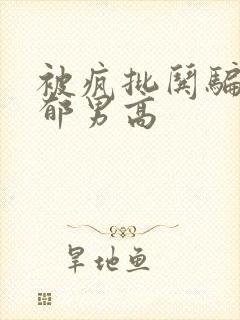 被疯批阴骗
郁男高
旱地鱼